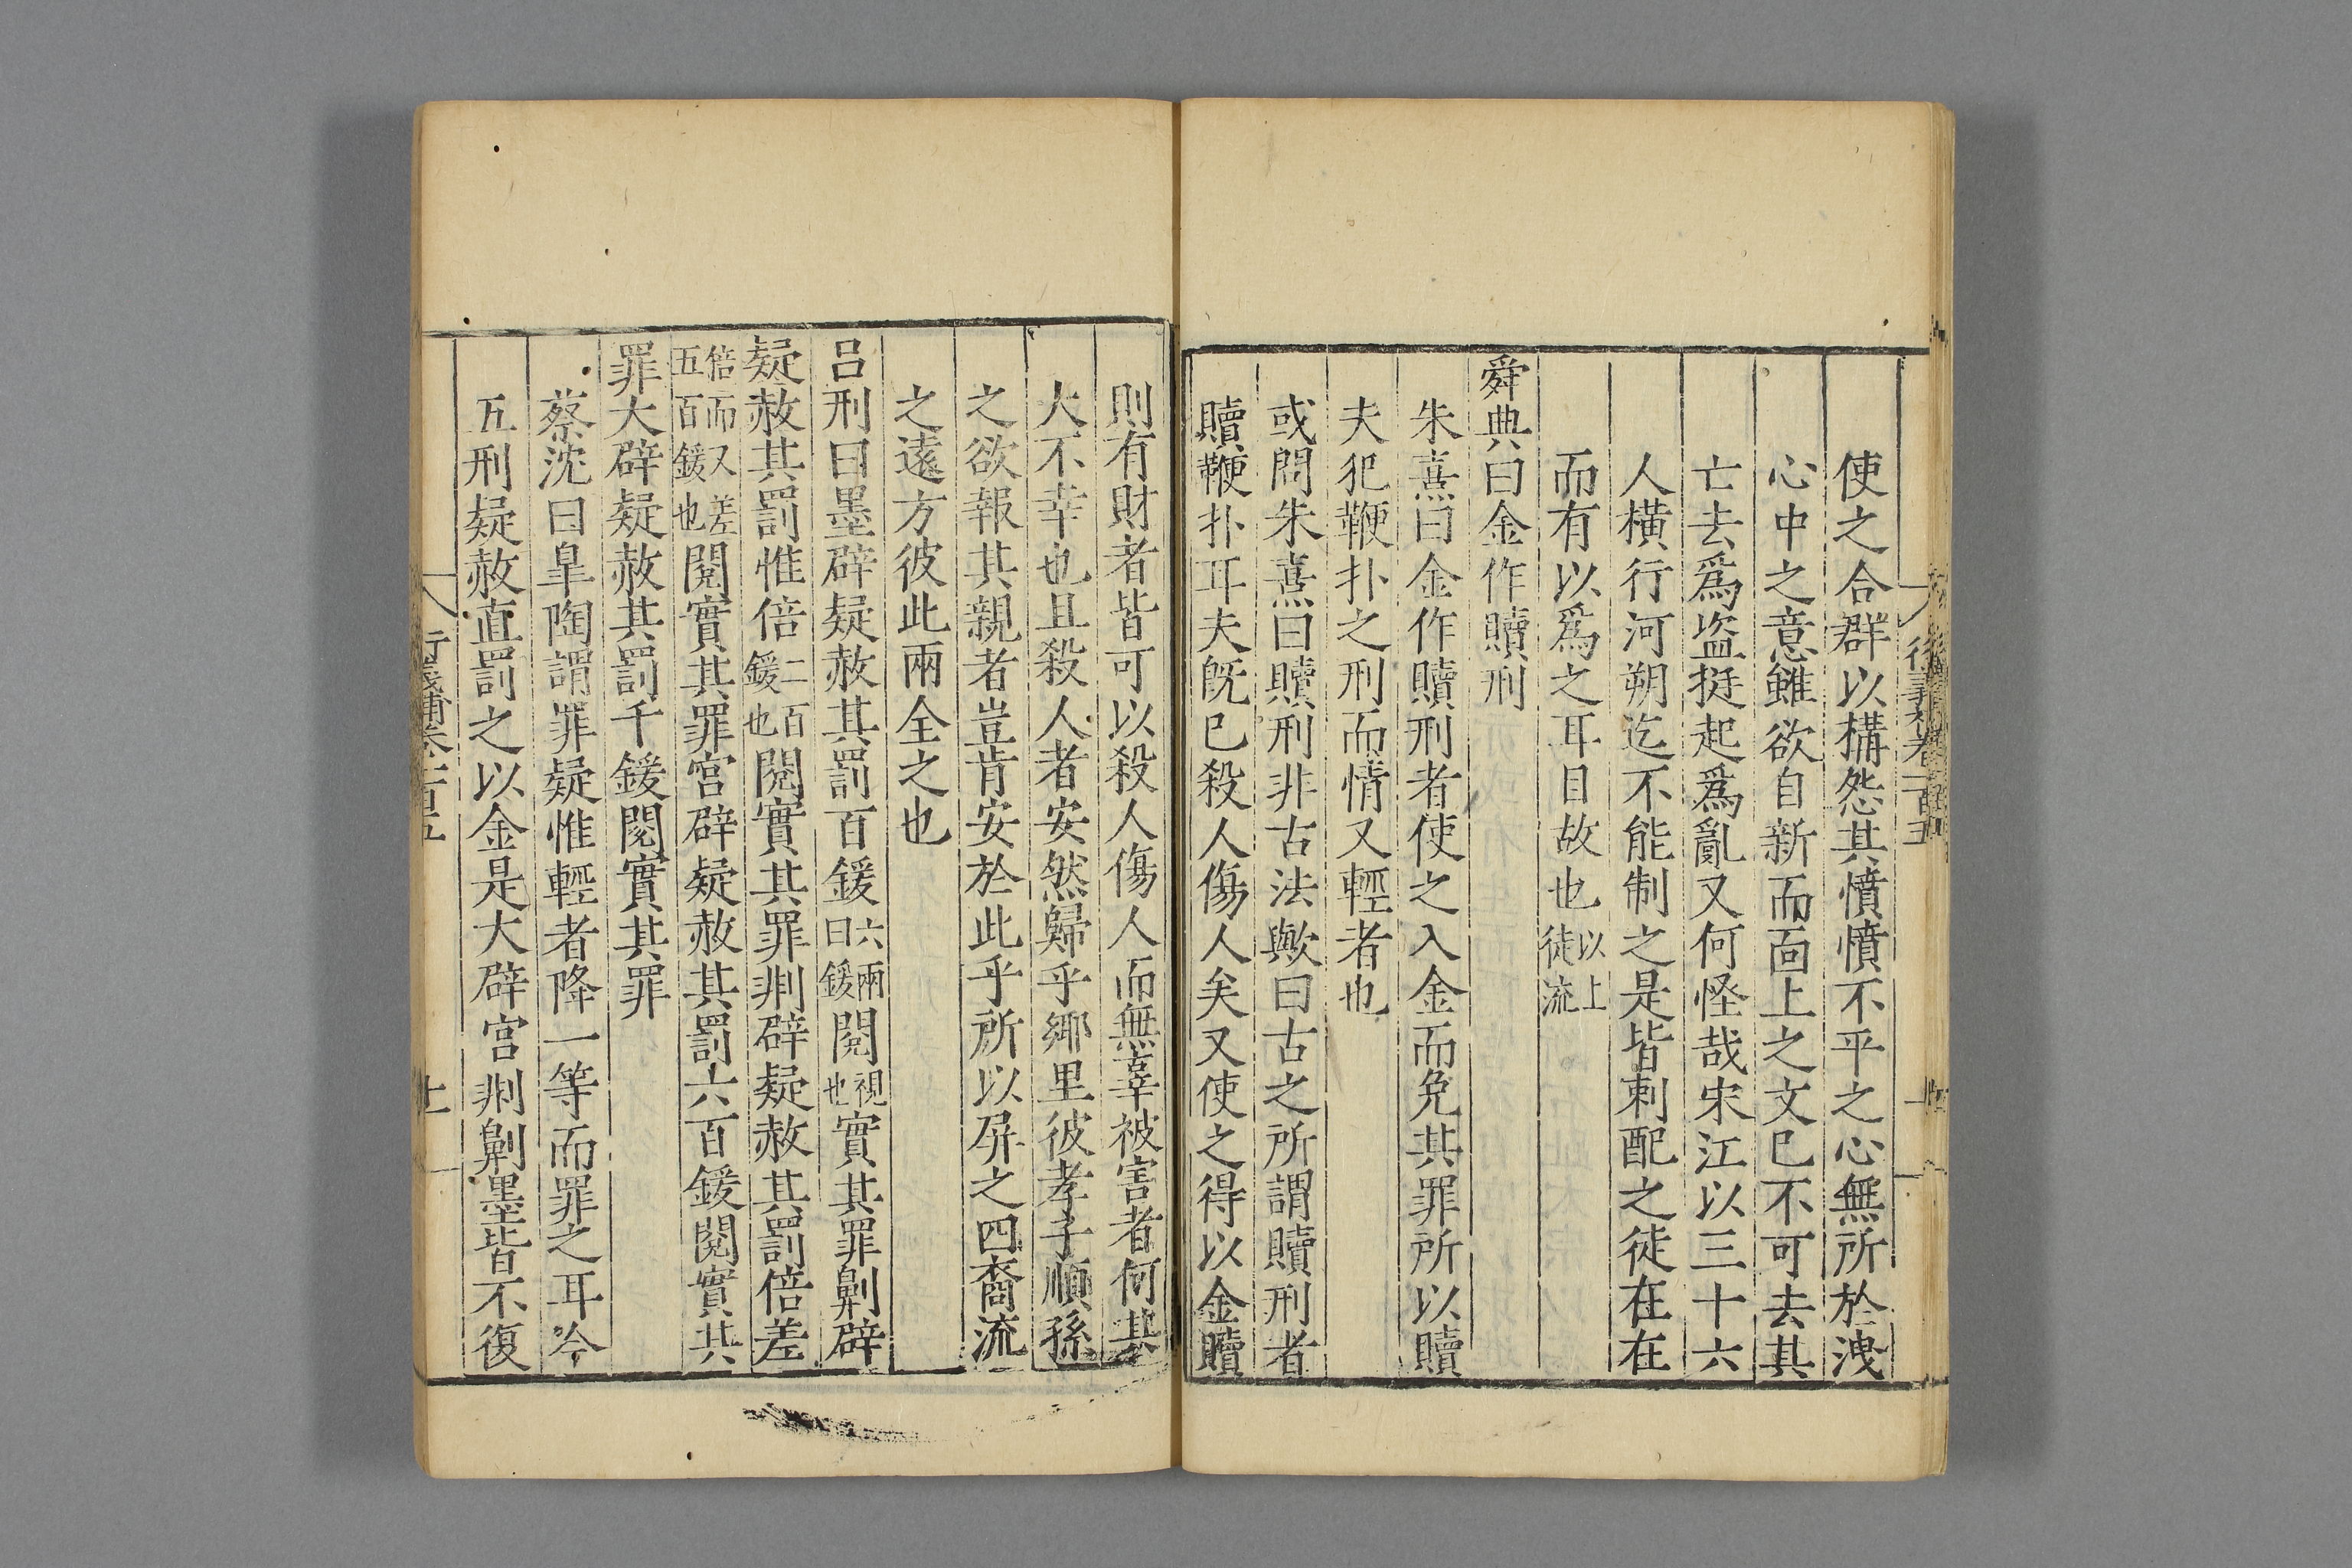 使之合群以構怨其憤憤不平之心無所於洩
心中之意雖欲自新而面上之文已不可去其
亡去爲盜挺起爲亂又何怪哉宋江以三十六
人橫行河朔迄不能制之是皆刺配之徒在在
而有以爲之耳目故也以上徒流
舜典曰金作贖刑
朱熹曰金作贖刑者使之入金而免其罪所以贖
夫犯鞭扑之刑而情又輕者也
或問朱熹曰贖刑非古法歟曰古之所謂贖刑者
贖鞭扑耳夫旣已殺人傷人矣又使之得以金贖
則有財者皆可以殺人傷人而無辜被害者何其
大不幸也且殺人者安然歸乎鄉里彼孝子順孫
之欲報其親者豈肯安於此乎所以屏之四裔流
之遠方彼此兩全之也
呂刑曰墨辟疑赦其罰百鍰六兩曰鍰閱視也實其罪劓辟
疑赦其罰惟倍二百鍰也閱實其罪剕辟疑赦其罰倍差
倍而又差五百鍰也閱實其罪宮辟疑赦其罰六百鍰閱實其
罪大辟疑赦其罰千鍰閱實其罪
蔡沈曰臯陶謂罪疑惟輕者降一等而罪之耳今
五刑疑赦直罰之以金是大辟宮剕劓墨皆不復